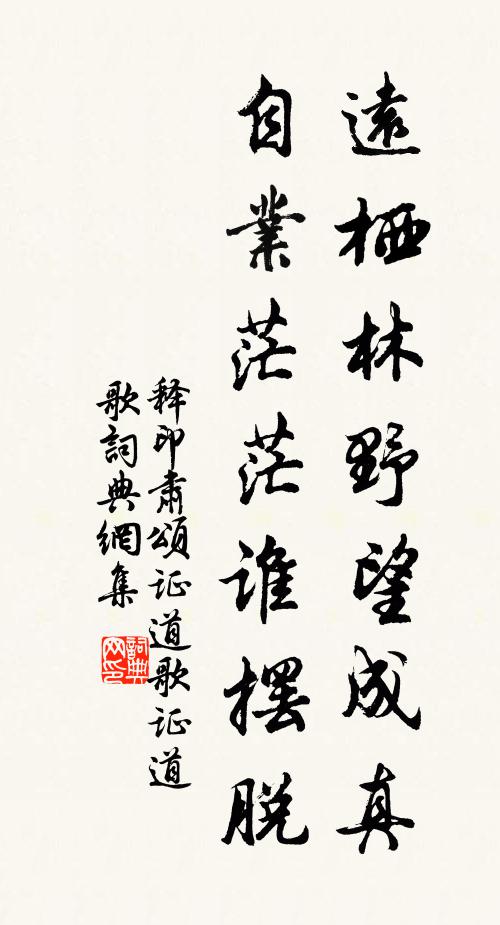 遠栖林野望成真
自業茫茫誰擺脫
释印肅頌证道歌证道
歌詞典網集
詞典網印